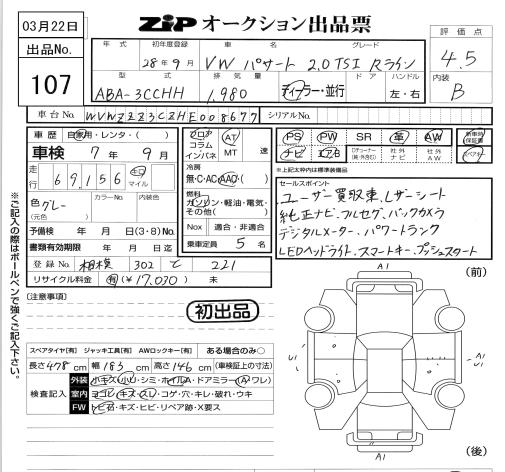 03月22日
ZIP オークション出品票
出品No.
107
年式 初年度登録 車名 グレード
28年9月 VW パサート 2.0TSI Rライン
型式 排気量 ドア ハンドル
ABA-3CCHH 1,980 ディーラー・並行 左・右
評価点
4.5
内装
B
車台No. WVWZZZ3CZHE008677 シリアルNo.
車歴 自家用・レンタ・( )
車検 7年9月
走行 69,156 キロ マイル
色 グレー カラーNo. 内装色
(元色)
予備検 年 月 日(3・8)No.
書類有効期限 年 月 日迄
登録No. 相模 302 て 221
リサイクル料金 有(¥17,030) 未
フロア コラム インパネ
AT MT 速
冷房
無・C・AC・AAC・( )
燃料
ガソリン・軽油・電気・その他( )
Nox 適合・非適合
乗車定員 5名
PS PW SR 革 AW 新車時保証書
ナビ エアB Dチューナー(純・外含む) 社外ナビ 社外AW スペアキー
※上記太枠内は標準装備品
セールスポイント
ユーザー買取車、レザーシート
純正ナビ・フルセグ・バックカメラ
デジタルメーター・パワートランク
LEDヘッドライト、スマートキー・プッシュスタート
※ご記入の際はボールペンで強くご記入下さい。
[注意事項]
初出品
スペアタイヤ[有] ジャッキ工具[有] AWロックキー[有] ある場合のみ○
長さ478cm 幅183cm 高さ146cm (車検証上の寸法)
検査記入
外装 小キズ・小凹・シミ・ホイルA・ドアミラー(A・ワレ)
室内 ヨゴレ・キズ・スレ・コゲ・穴・キレ・破れ・ウキ
FW トビ石・キズ・ヒビ・リペア跡・X要ス
(前)
A1
U1
A1
U1
A1
(後)